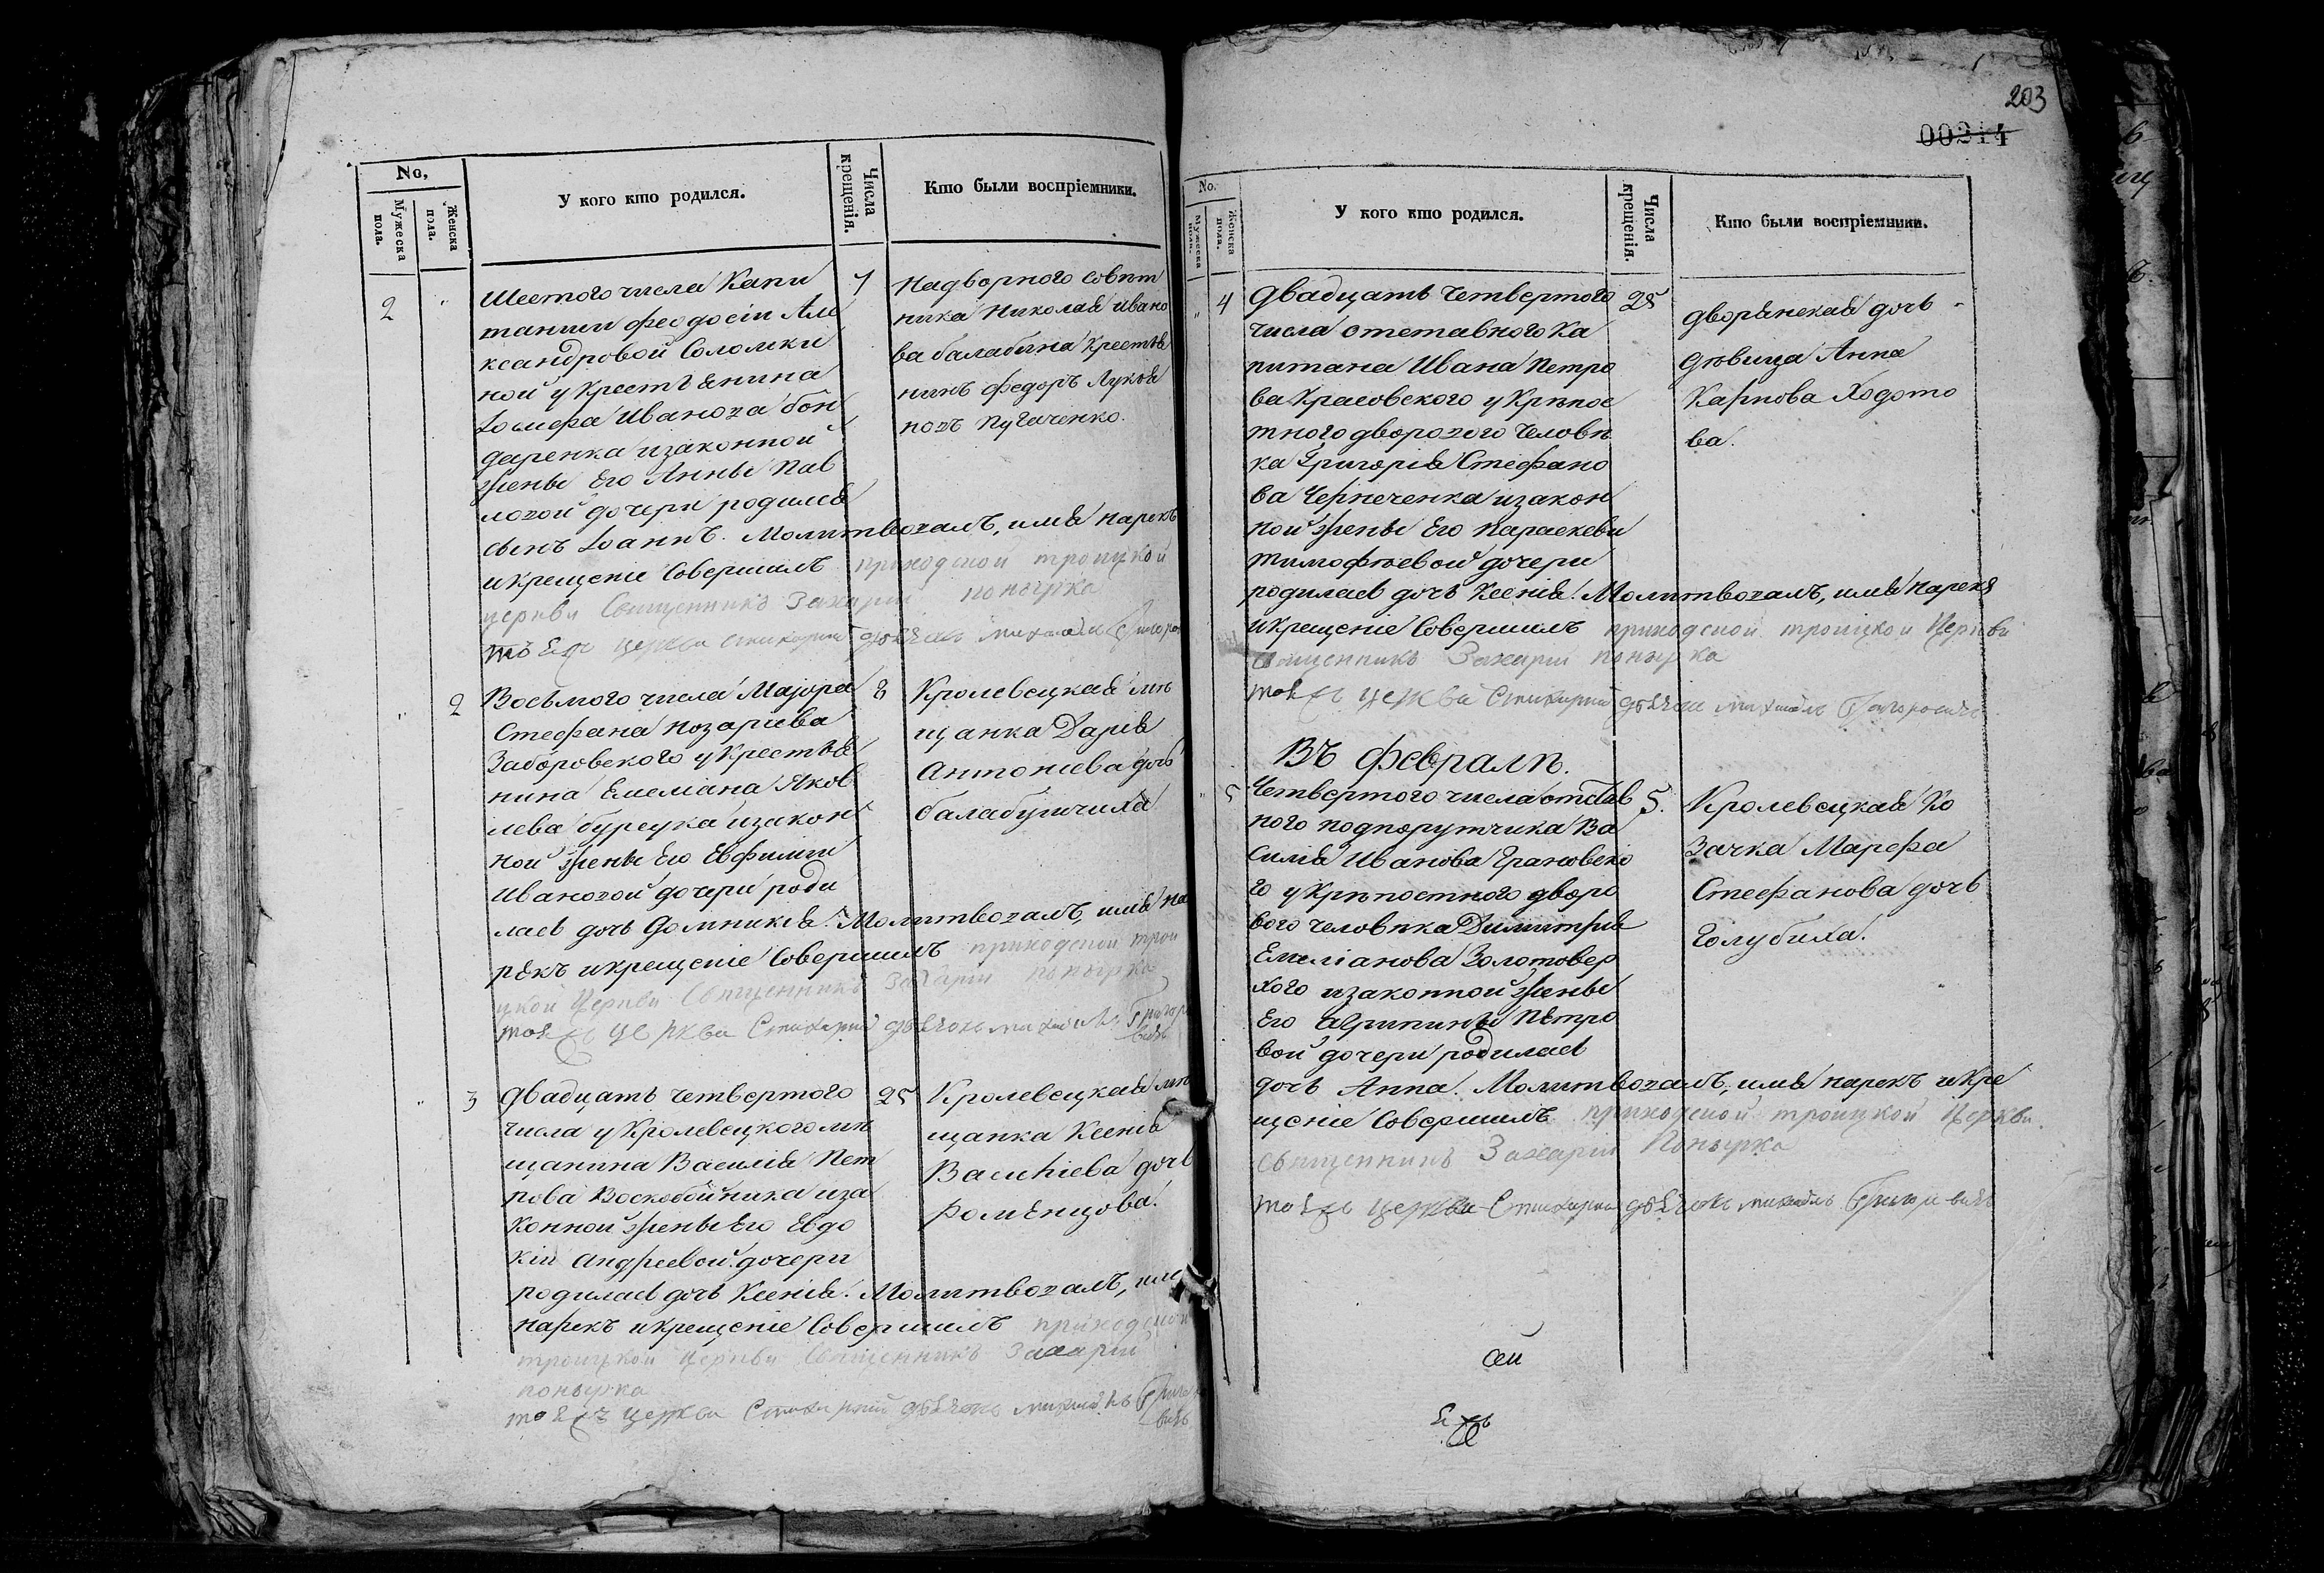 No,
Мужеска пола.
Женска пола.
У кого кто родился.
Числа крещенія.
Кто были воспріемники.
2
"
Шестого числа Капи
танши Феодосіи Але
ксандровой Соломки
ной у крестьянина
Іосифа Иванова бон
даренка и законной
жены Его Анны Пав
ловой дочери родился
сынъ Іоаннъ. Молитвовалъ, имя нарекъ
и крещеніе Совершилъ приходской троицкой
церкви Священникъ Захарій Понырка
тоя жъ церкви стихарний дьячокъ Михаилъ
7
Надворного Совѣт
ника Николая Ивано
ва балабина Крестья
нинъ Федоръ Лукья
новъ Пугаченко.
"
2
Восьмого числа Маіора
Стефана Назаріева
Заборовского у Крестья
нина Емеліана Яков
лева буреука и закон
ной жены Его Евфиміи
Ивановой дочери роди
лась дочь Домникія. Молитвовалъ, имя на
рекъ и крещеніе Совершилъ приходской трои
цкой Церкви Священникъ Захарій Понырка
тоя жъ церкви Стихарний дьячокъ Михаилъ Григоро
вичъ
8
Кролевецкая мѣ
щанка Дарія
Антоніева дочь
балабушчиха
"
3
Двадцать четвертого
числа у Кролевецкого мѣ
щанина Василія Пет
рова Воскобойника и за
конной жены Его Евдо
кіи Андреевой дочери
родилась дочь Ксенія. Молитвовалъ, имя
нарекъ и крещеніе Совершилъ приходской
троицкой церкви Священникъ Захарій
Понырка
тоя жъ церкви Стихарний дьячокъ Михаилъ Григоро
вичъ
25
Кролевецкая мѣ
щанка Ксенія
Василіева дочь
Роменцова.
203
00214
No.
Мужеска пола.
Женска пола.
У кого кто родился.
Числа крещенія.
Кто были воспріемники.
"
4
Двадцать четвертого
числа отставного Ка
питана Ивана Петро
ва Красовского у Крѣпос
тного дворового человѣ
ка Григорія Стефано
ва Чернеченка и закон
ной жены Его Параскеви
Тимофѣевой дочери
родилась дочь Ксенія. Молитвовалъ, имя нарекъ
и крещеніе Совершилъ приходской троицкой Церкви
Священникъ Захарій Понырка
тоя жъ церкви Стихарний дьячокъ Михаилъ Григоровичъ
25
дворянская дочь
дѣвица Анна
Карпова Ходото
ва.
Въ Февралѣ.
"
5
Четвертого числа отстав
ного подпорутчика Ва
силія Иванова Грановско
го у Крѣпостного дворо
вого человѣка Димитрія
Емеліанова Золотовер
хого и законной жены
Его Агрипины Петро
вой дочери родилась
дочь Анна. Молитвовалъ, имя нарекъ и кре
щеніе Совершилъ приходской троицкой Церкви
Священникъ Захарій Понырка
тоя жъ церкви Стихарни дьячокъ Михаилъ Григоровичъ
5.
Кролевецкая Ко
зачка Марфа
Стефанова дочь
Голубиха.